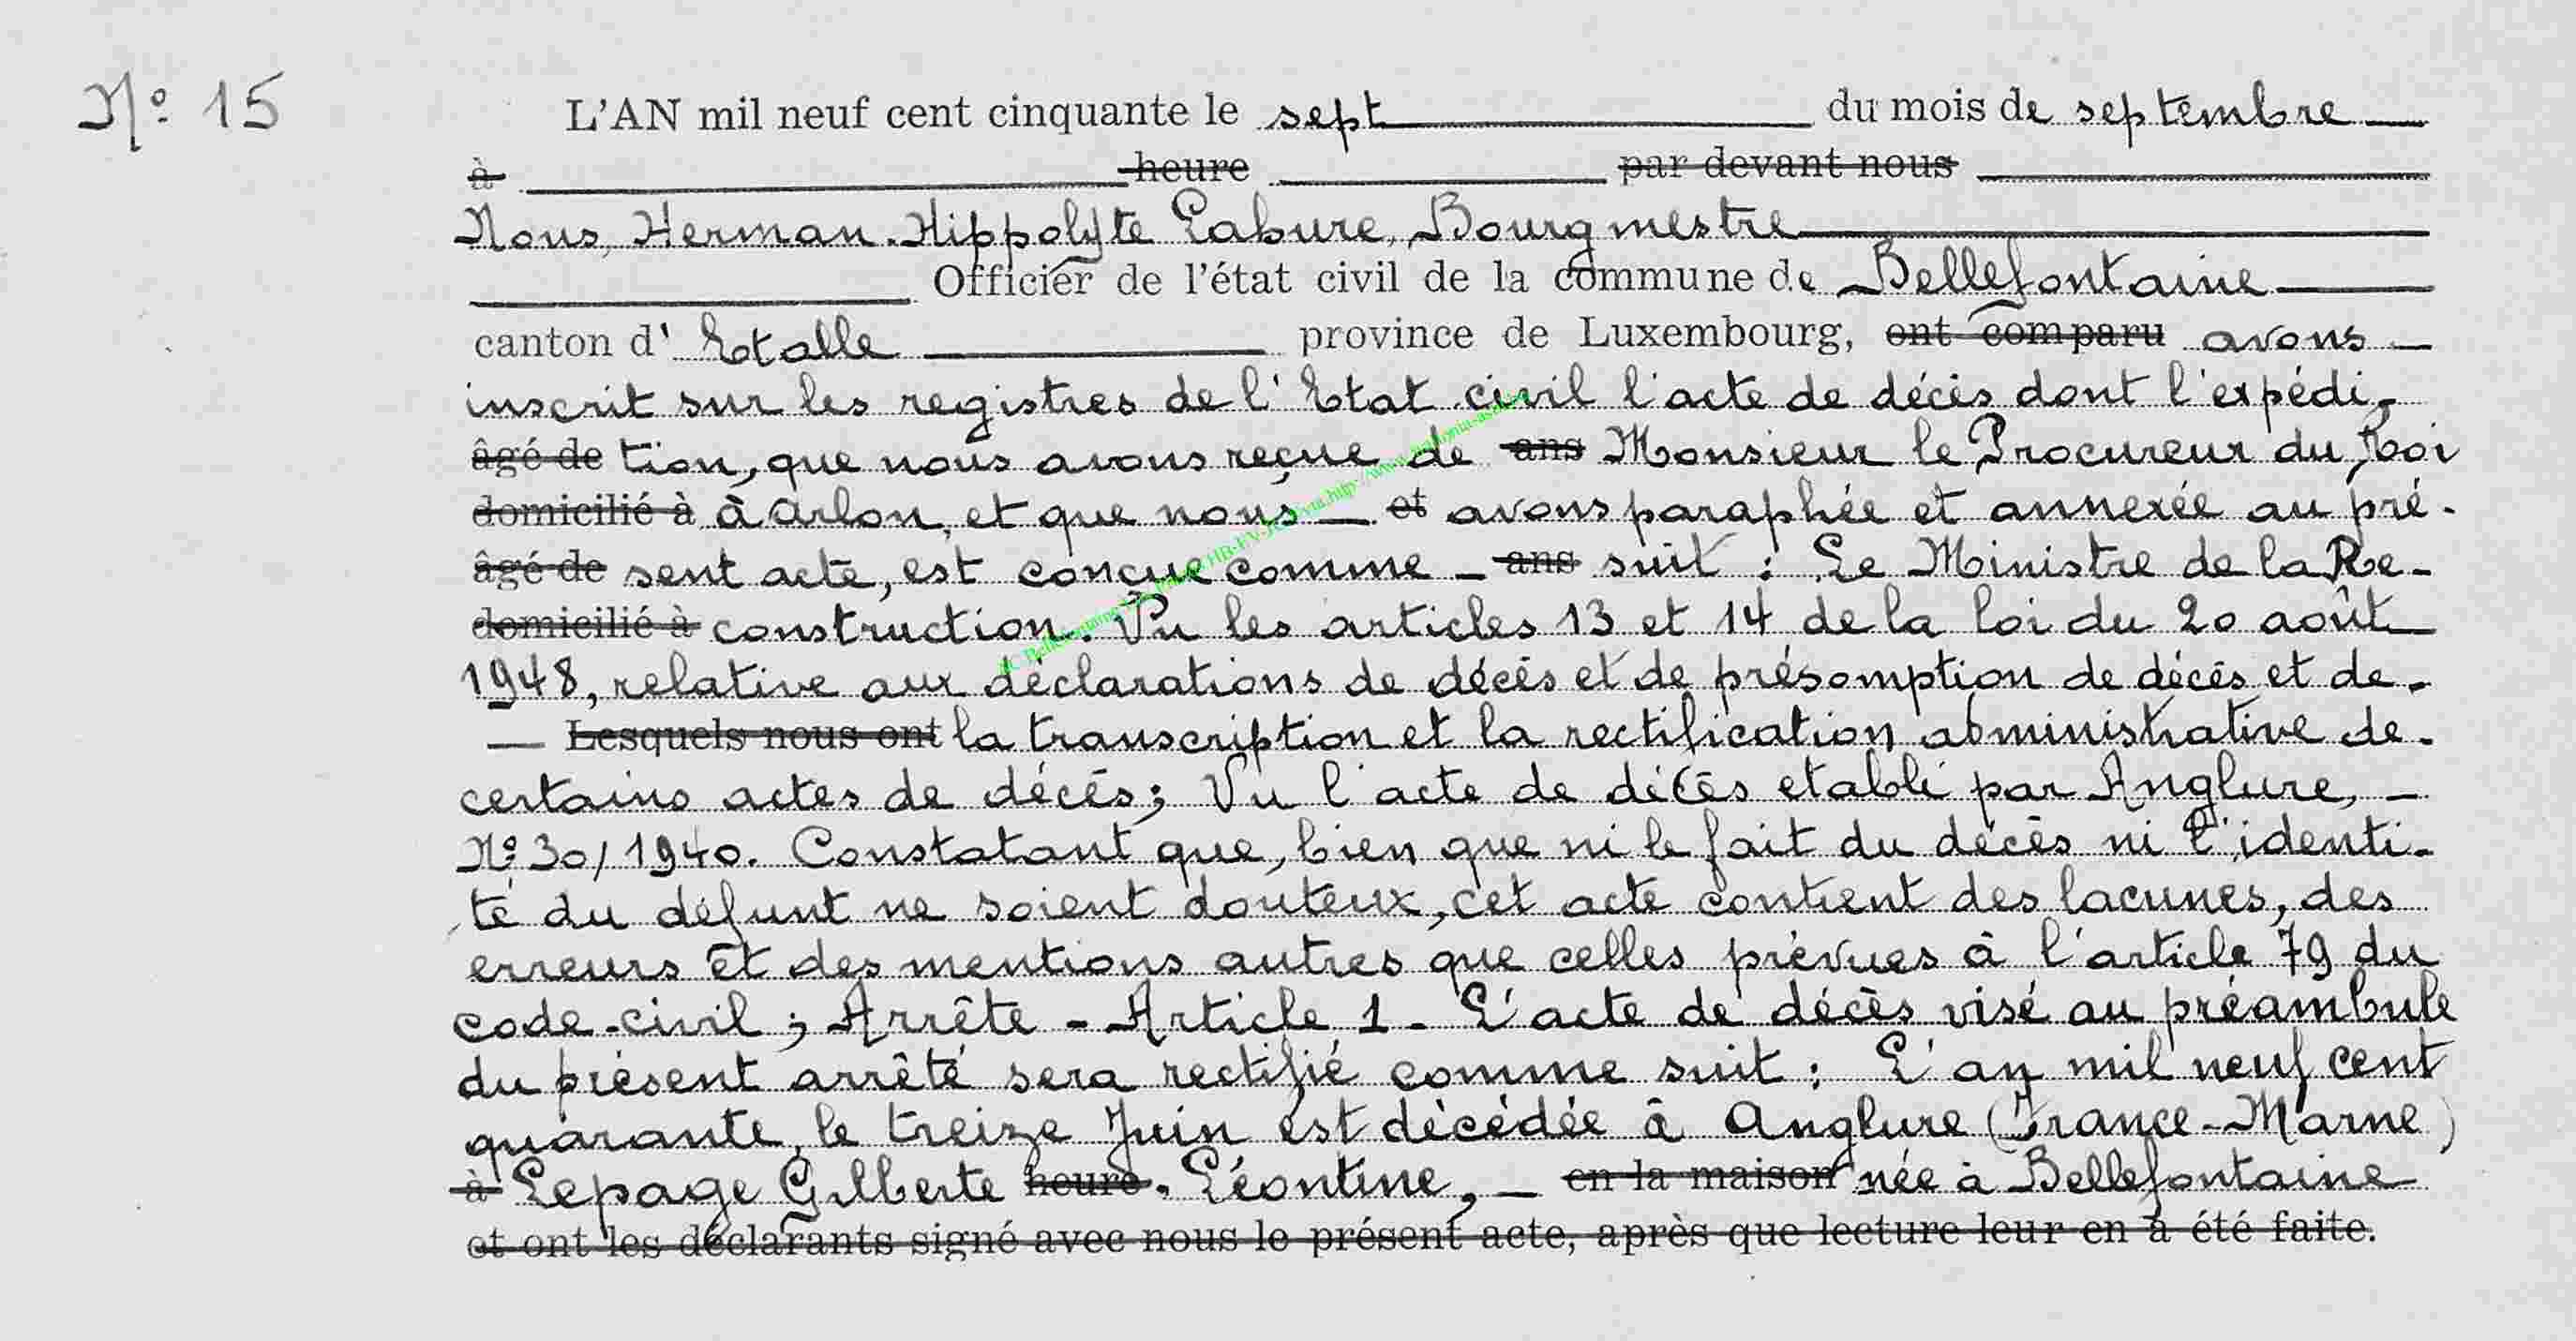 N° 15
L'AN mil neuf cent cinquante le sept du mois de septembre
à heure par devant nous
Nous, Herman-Hippolyte Labure, Bourgmestre
Officier de l'état civil de la commune de Bellefontaine
canton d' Etalle province de Luxembourg, ont comparu avons
inscrit sur les registres de l'Etat civil l'acte de décès dont l'expédi-
âgé de tion, que nous avons reçue de ans Monsieur le Procureur du Roi
domicilié à à Arlon, et que nous et avons paraphée et annexée au pré-
âgé de sent acte, est conçue comme ans suit : Le Ministre de la Re-
domicilié à construction. Vu les articles 13 et 14 de la loi du 20 août
1948, relative aux déclarations de décès et de présomption de décès et de
Lesquels nous ont la transcription et la rectification administrative de
certains actes de décès; Vu l'acte de décès etabli par Anglure,
N° 30/1940. Constatant que, bien que ni le fait du décès ni l'identi-
té du défunt ne soient douteux, cet acte contient des lacunes, des
erreurs et des mentions autres que celles prévues à l'article 79 du
code-civil ; Arrête - Article 1 - L'acte de décès visé au préambule
du présent arrêté sera rectifié comme suit : L'an mil neuf cent
quarante, le treize Juin est décédée à Anglure (France-Marne)
à Lepage Gilberte heure. Léontine, en la maison née à Bellefontaine
et ont les déclarants signé avec nous le présent acte, après que lecture leur en a été faite.